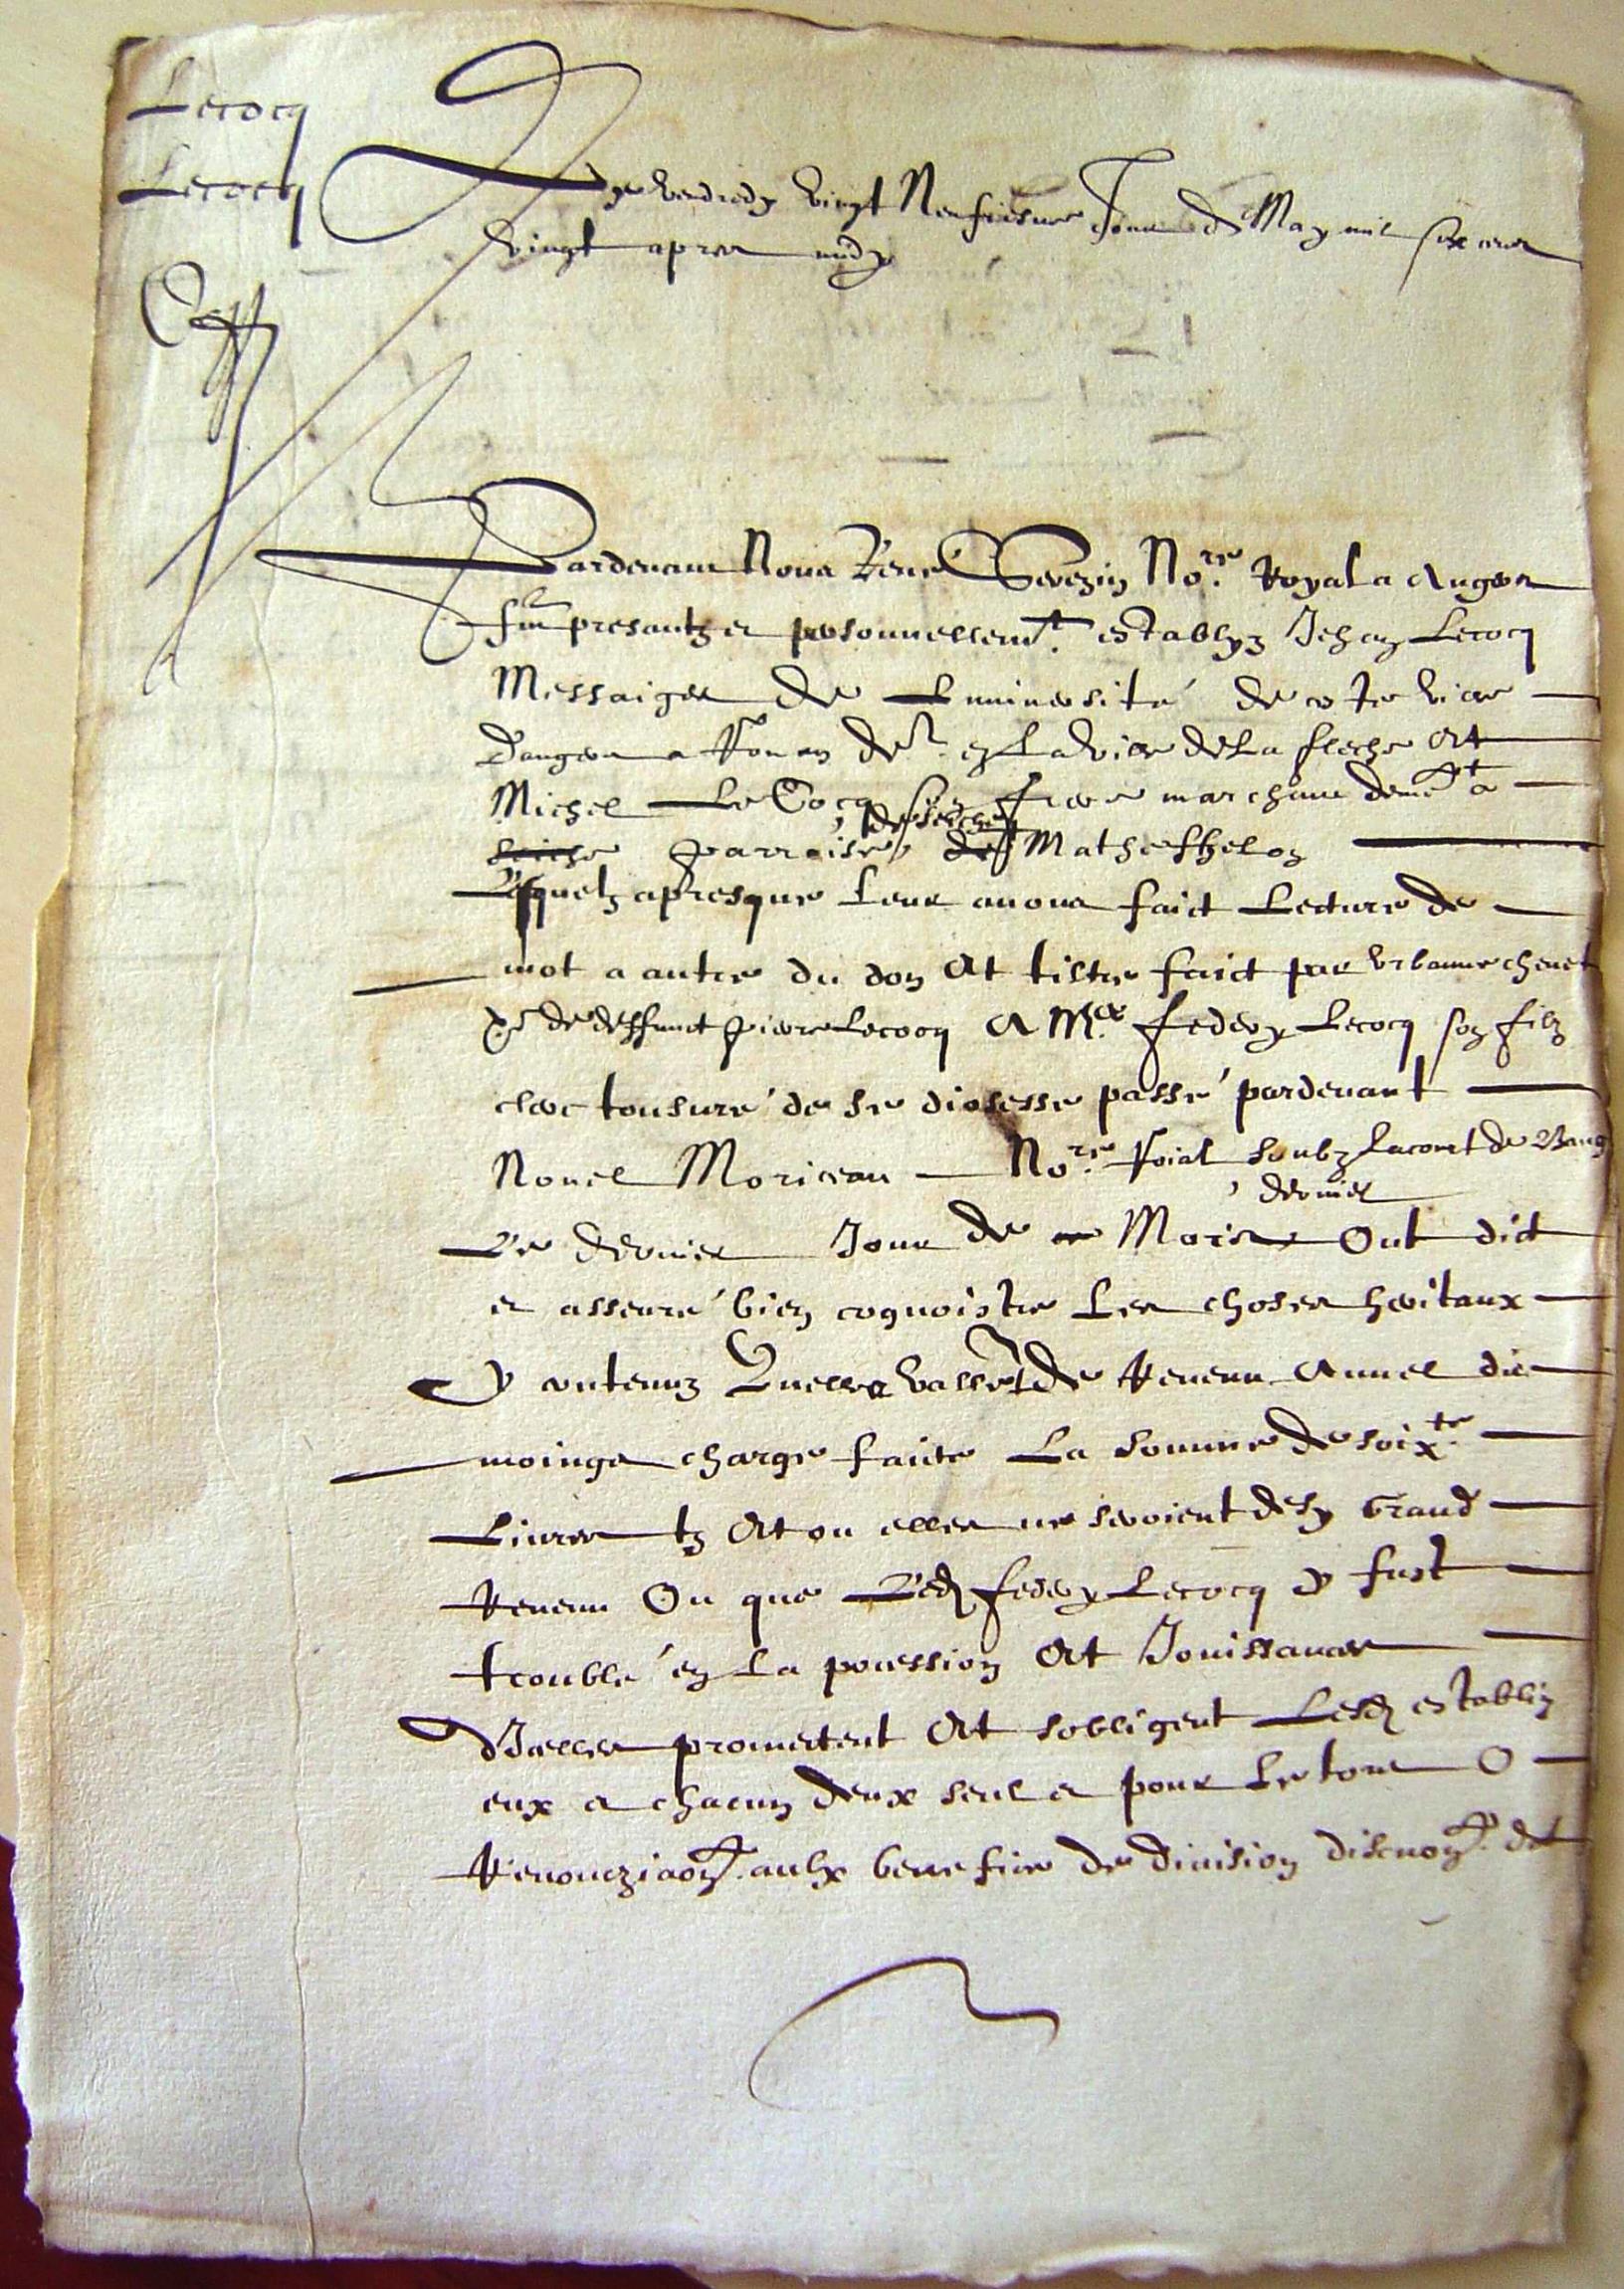 Lecocq
Lecocq
Le vendredy vingt Neufiesme Jour de May mil six cens
vingt apres midy
Pardevant Nous René Serezin No.re Royal a Angers
fut presantz et personnellemt. establyz Jehan Lecocq
Messaiger de Luniversité de ceste ville
Dangers a Rouen demt. en La ville de La fleche Et
Michel Le Cocq son frere marchant demt. a
seiche parroisse de seiche de Matheflhelon
Lesquelz apres que Leur avons faict Lecture de
mot a autre du don Et tiltre faict par Urbanne chenet
ve de deffunct pierre Lecocq A Me. federy Lecocq son filz
clerc tonsuré de se diosesse passé pardevant
Nouel Moriceau No.re Roial soubz La court de Baugé
Le dernier Jour de ce Mois dernier Ont dict
et asseuré bien cognoistre Les choses heritaux
y contenuz Quelles vallent de Revenu Annuel du
moings charge faicte La somme de soixte.
Livres tz Et ou elles ne seroient de sy Grand
Revenu Ou que Led federy Lecocq y fust
troublé en La pocession Et Jouissance
dIcelles promettent Et sobligent Lesd establiz
eux et chacun deux seul et pour Le tout O
Renoncziaon. aulx benefice de division discuon. det